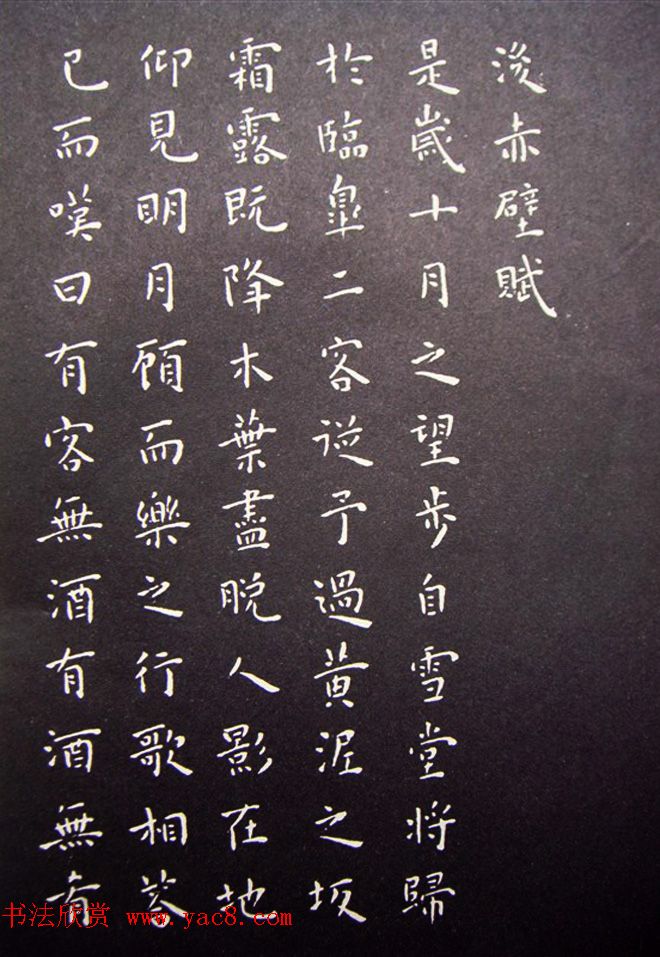 後赤壁賦
是歲十月之望步自雪堂將歸
於臨皋二客從予過黃泥之坂
霜露既降木葉盡脫人影在地
仰見明月顧而樂之行歌相答
已而嘆曰有客無酒有酒無肴
书法欣赏 www.yac8.com